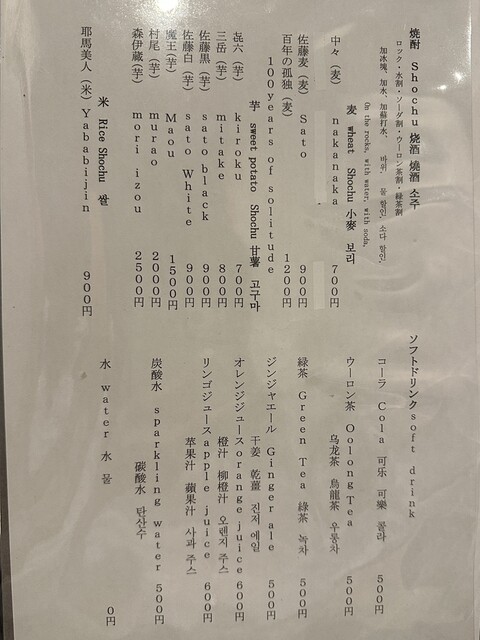 焼酎 Shochu 烧酒 燒酒 소주
ロック・水割・ソーダ割・ウーロン茶割・緑茶割
加冰塊、加水、加蘇打水、 바위, 물 할인, 소다 할인,
On the rocks, with water, with soda,
麦 wheat Shochu 小麥 보리
中々（麦） nakanaka 700円
佐藤麦（麦） Sato 900円
百年の孤独（麦） 1200円
100years of solitude
芋 sweet potato Shochu 甘薯 고구마
㐂六（芋） kiroku 700円
三岳（芋） mitake 800円
佐藤黒（芋） sato black 900円
佐藤白（芋） sato White 900円
魔王（芋） Maou 1500円
村尾（芋） murao 2000円
森伊蔵（芋） mori izou 2500円
米 Rice Shochu 쌀
耶馬美人（米） Yababijin 900円
ソフトドリンク soft drink
コーラ Cola 可乐 可樂 콜라 500円
ウーロン茶 Oolong Tea 500円
乌龙茶 烏龍茶 우롱차
緑茶 Green Tea 綠茶 녹차 500円
ジンジャエール Ginger ale 500円
干姜 乾薑 진저 에일
オレンジジュース orange juice 600円
橙汁 柳橙汁 오렌지 주스
リンゴジュース apple juice 600円
苹果汁 蘋果汁 사과 주스
炭酸水 sparkling water 500円
碳酸水 탄산수
水 water 水 물 0円